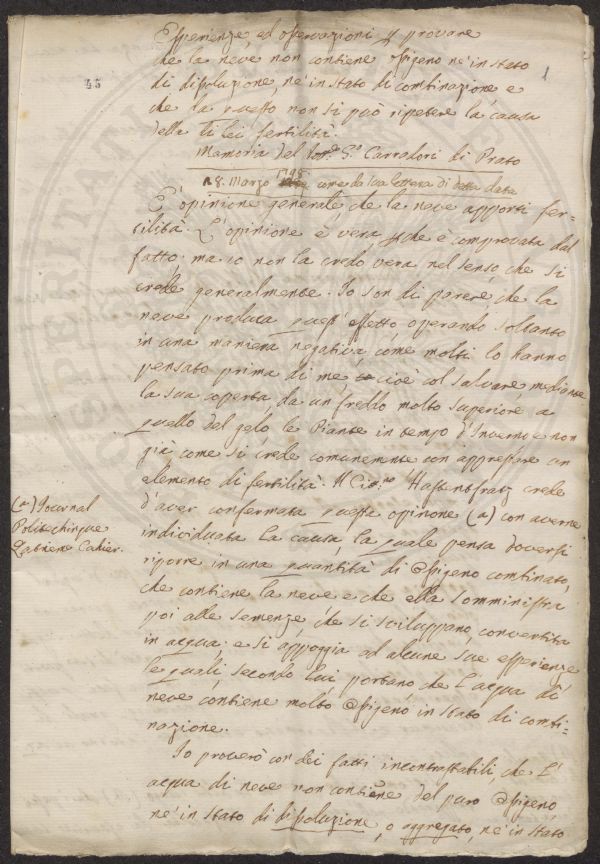 Esperienze ed osservazioni p provare
che la neve non contiene Ossigeno nè in stato
di dissoluzione, nè in stato di combinazione e
che da questo non si può ripetere la causa
della di lei fertilità.
45
1
Memoria del S.r Carradori di Prato
18. Marzo 1798 come da sua lettera di detta data
E' opinione generale, che la neve apporti fer-
tilità. L'opinione è vera perche è comprovata dal
fatto, ma io non la credo vera nel senso, che si
crede generalmente. Io son di parere, che la
neve produca quest'effetto operando soltanto
in una maniera negativa come molti lo hanno
pensato prima di me cioè col salvare mediante
la sua coperta, da un freddo molto superiore a
quello del gelo le Piante in tempo d'Inverno e non
già come si crede comunemente con apprestare un
elemento di fertilità. Il Citt.no Hassenfratz crede
d'aver confermata questa opinone (a) con averne
individuata la causa la quale pensa doversi
riporre in una quantità di Ossigeno combinato,
che contiene la neve e che ella somministra
poi alle semenze che si sviluppano, convertita
in acqua: e si appoggia ad alcune sue esperienze
le quali secondo lui portano che l'acqua di
neve contiene molto Ossigeno in stato di combi=
nazione.
(a) Journal
Politechinque
Cahier.
Io proverò con dei fatti incontrastabili, che l'
acqua di neve non contiene del puro Ossigeno
ne' in stato di dissoluzione, o aggregato, ne' in stato